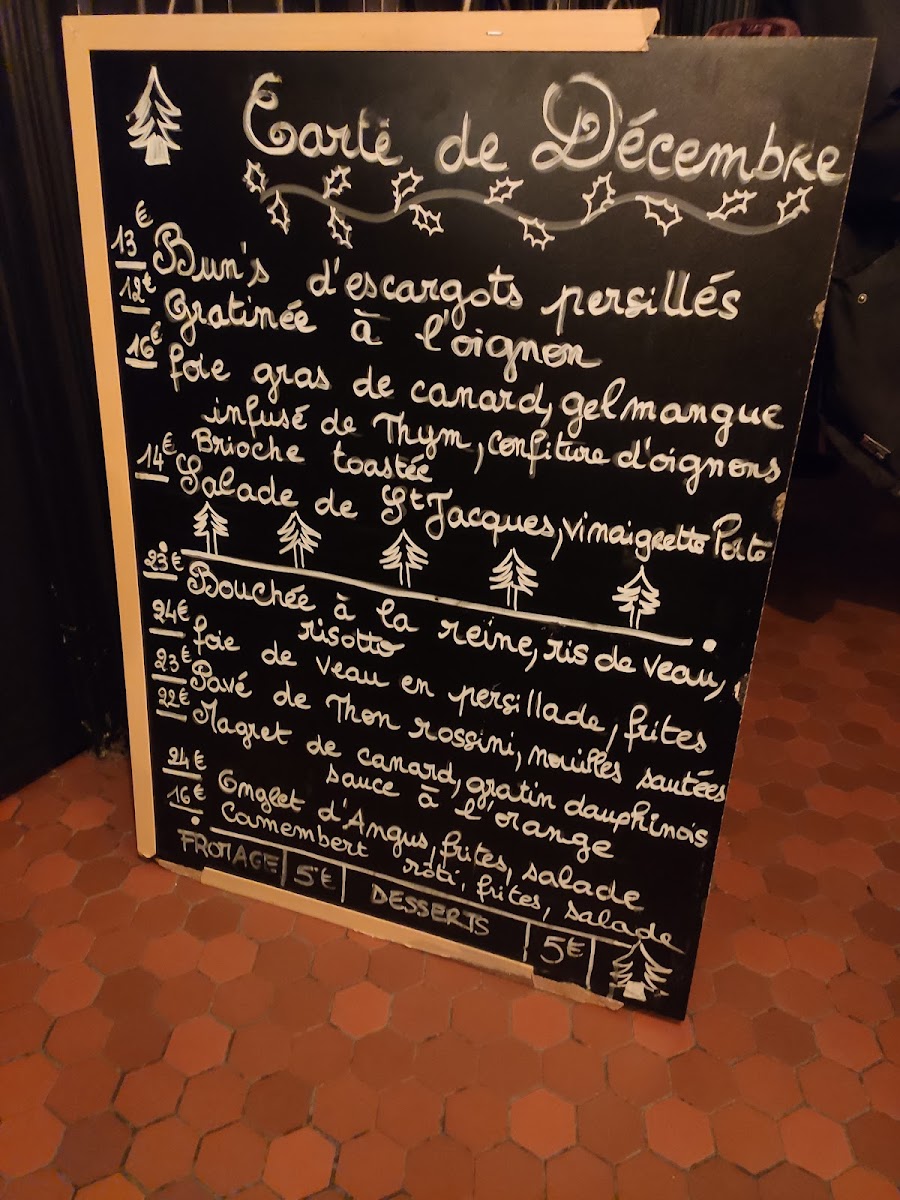 Carte de Décembre
13€ Bun's d'escargots persillés
12€ Gratinée à l'oignon
16€ foie gras de canard, gel mangue
infusé de Thym, confiture d'oignons
Brioche toastée
14€ Salade de St Jacques, vinaigrette Porto
23€ Bouchée à la reine, ris de veau,
risotto
24€ foie de veau en persillade, frites
23€ Pavé de Thon rossini, nouilles sautées
22€ Magret de canard, gratin dauphinois
sauce à l'orange
24€ Onglet d'Angus, frites, salade
16€ Camembert rôti, frites, salade
FROMAGE 5€ DESSERTS 5€